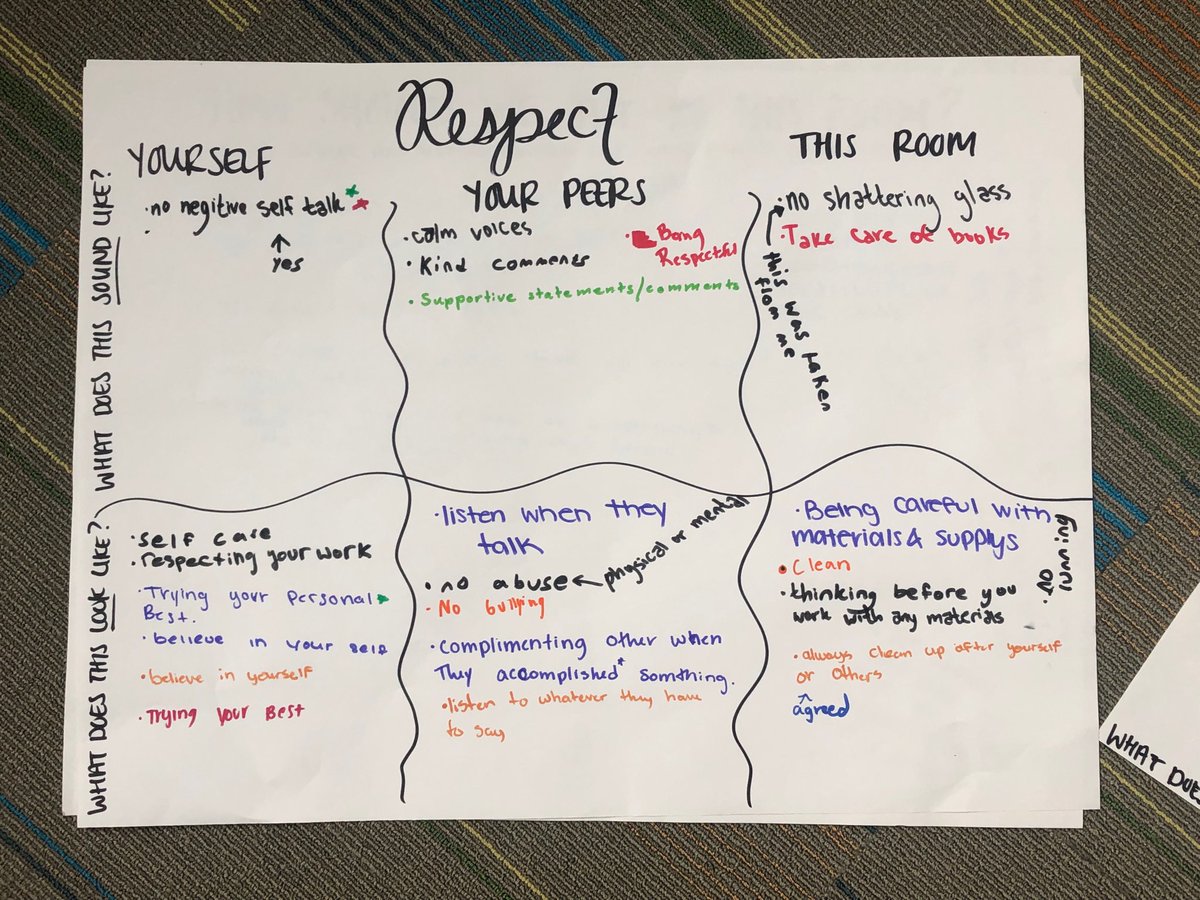 Respect
YOURSELF
YOUR PEERS
THIS ROOM
WHAT DOES THIS SOUND LIKE?
·no negitive self talk
yes
·calm voices
·Kind comments
·Being
Respectful
·Supportive statements/comments
·no shattering glass
·Take care of books
this was taken
from me
WHAT DOES THIS LOOK LIKE?
·self care
·respecting your work
·Trying your personal
Best.
·believe in your self
·believe in yourself
·Trying your Best
·listen when they
talk
·no abuse
physical or mental
·No bullying
·complimenting other when
They accomplished somthing.
·listen to whatever they have
to say
·Being careful with
materials & supplys
·Clean
·thinking before you
work with any materials
·no
running
·always clean up after yourself
or others
agreed
WHAT DOE